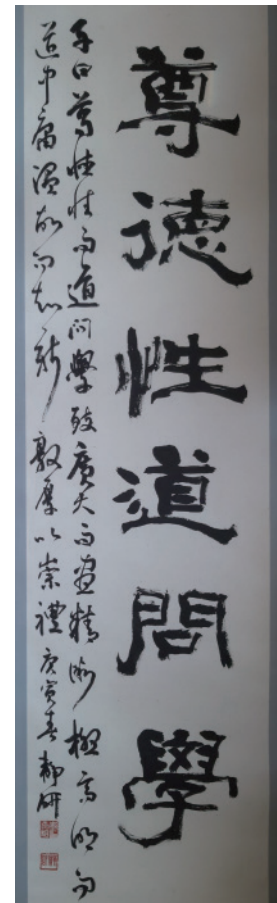 尊德性道問學
子曰尊德性而道問學致廣大而盡精微極高明而
道中庸溫故而知新敦厚以崇禮 庚寅春 靜研